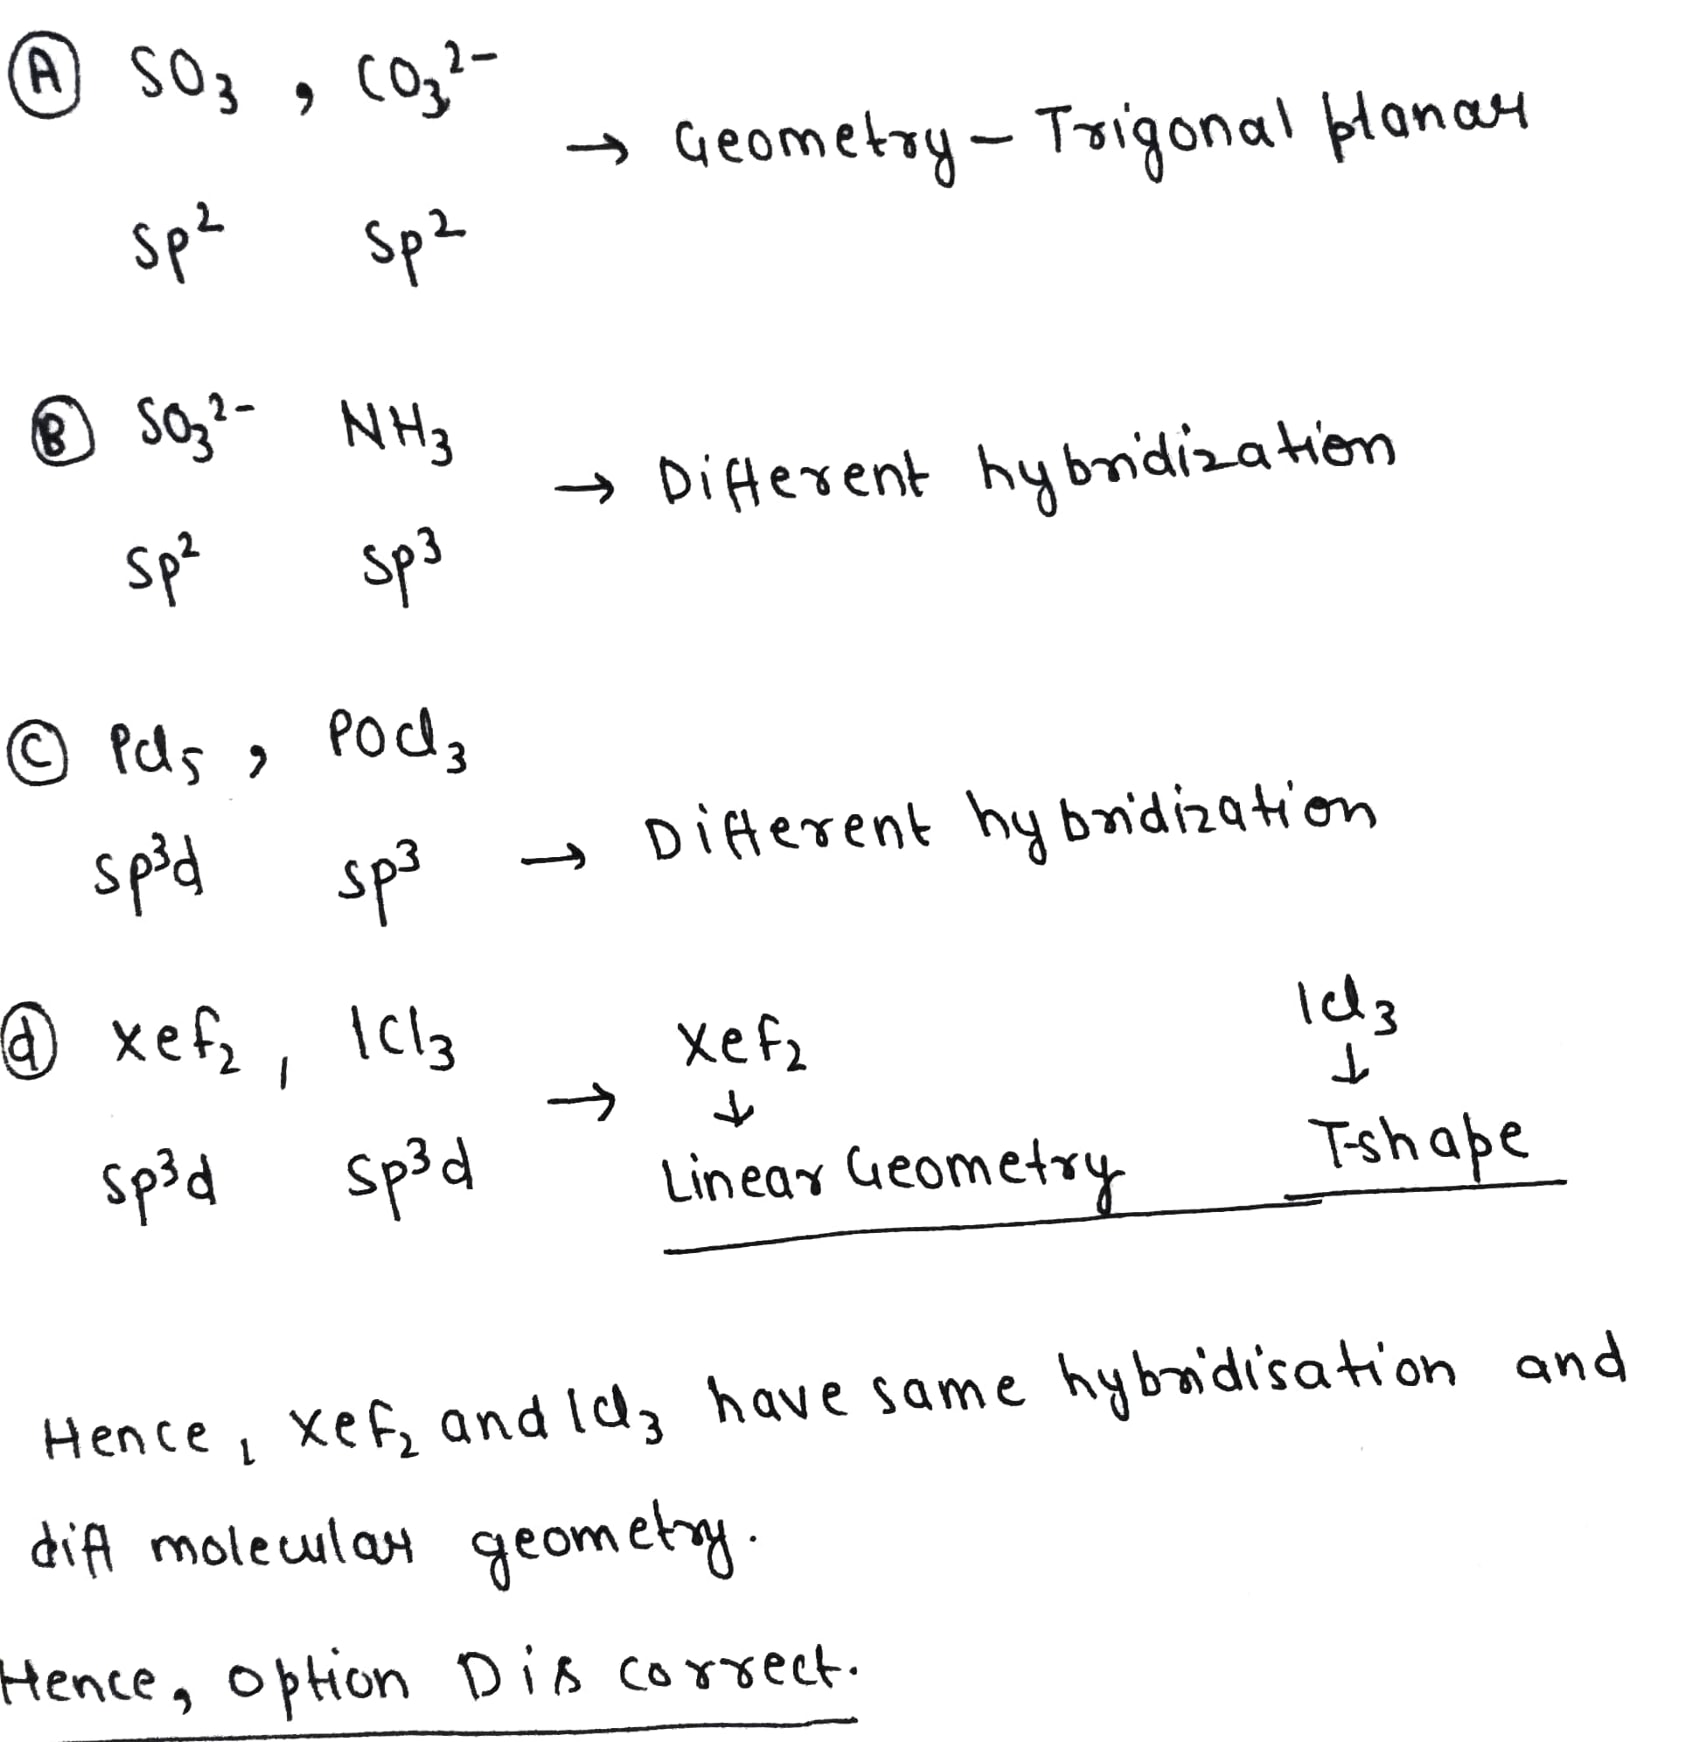 Ⓐ SO₃ , CO₃²⁻
→ Geometry – Trigonal planar
sp² sp²
Ⓑ SO₃²⁻ NH₃
→ Different hybridization
sp² sp³
Ⓒ PCl₅ , POCl₃
sp³d sp³ → Different hybridization
ⓓ XeF₂ , ICl₃ → XeF₂ ICl₃
↓ ↓
sp³d sp³d Linear Geometry T-shape
Hence, XeF₂ and ICl₃ have same hybridisation and
diff molecular geometry.
Hence, option D is correct.